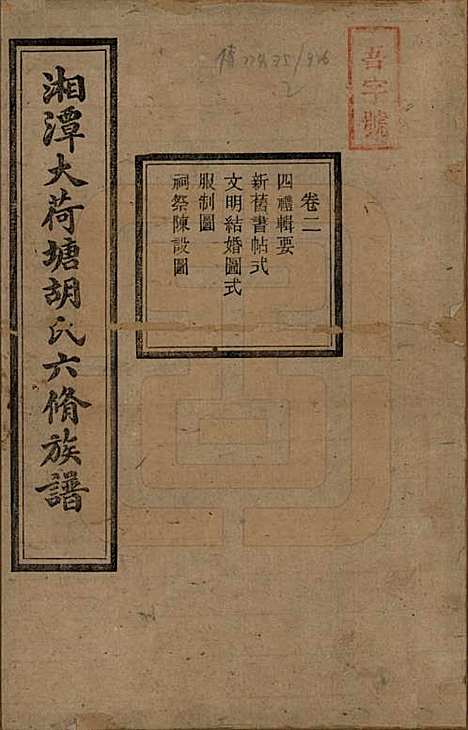 吾字號
卷二
四禮輯要
新舊書帖式
文明結婚圖式
服制圖
祠祭陳設圖
湘潭大荷塘胡氏六脩族譜